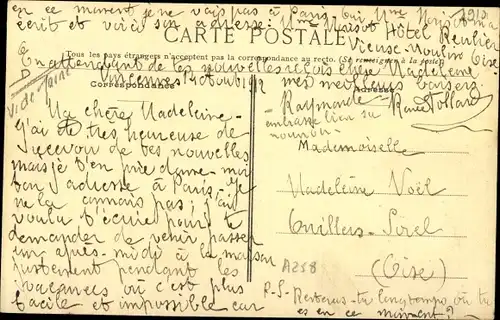 en ce moment je ne vais pas à Paris. Oui Mme Morisot m'a
écrit et voici son adresse: Mme Morisot Hôtel
CARTE POSTALE
Vieux Moulin Oise
Tous les pays étrangers n'acceptent pas la correspondance au recto. (Se renseigner à la poste)
En attendant de tes nouvelles reçois chère Madeleine
mes meilleurs baisers.
Correspondance
Adresse
Raymonde
embrasse bien ta
Ma chère Madeleine.
J'ai été très heureuse de
recevoir de tes nouvelles
mais je t'en prie donne-moi
ton adresse à Paris. Je
ne la connais pas; j'ai
voulu t'écrire pour te
demander de venir passer
un après-midi à la maison
justement pendant les
vacances où c'est plus
facile et impossible car
Mademoiselle
Madeleine Noël
Cuillers-Sorel
(Oise)
A258
P-S. Resteras-tu longtemps où tu
es en ce moment?